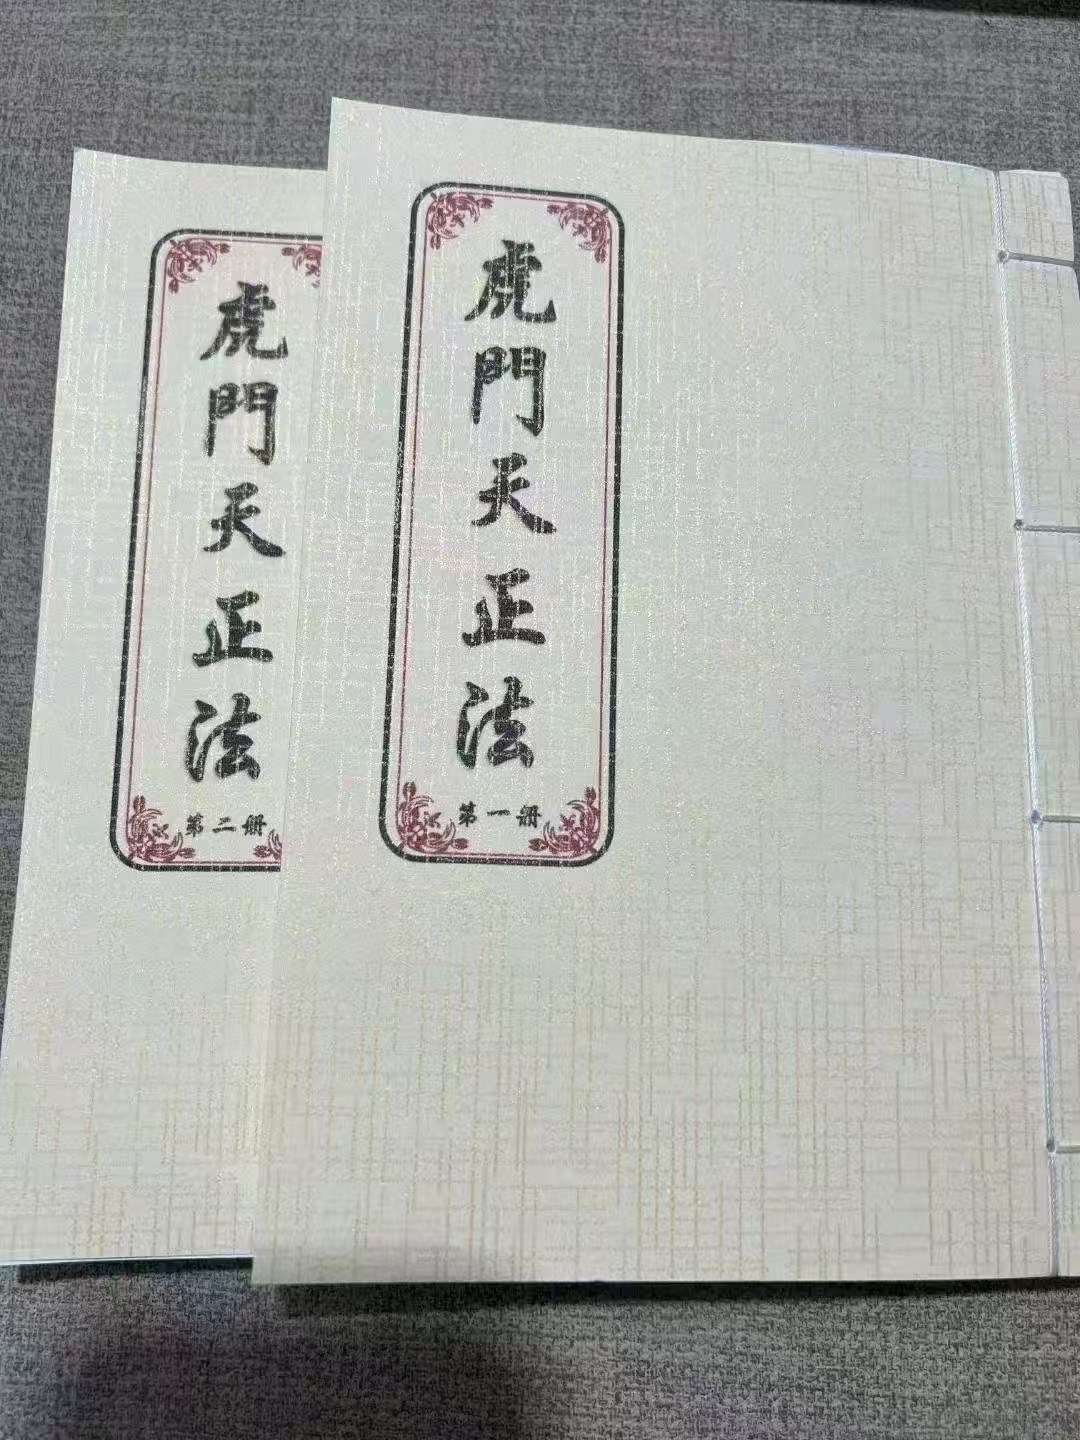 虎門天正法
第一册
虎門天正法
第二册